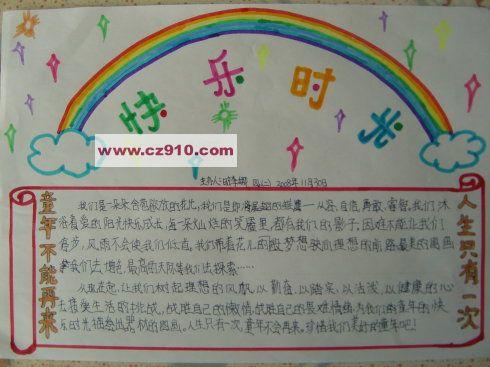 快乐时光
www.cz910.com
四(二) 2008年11月30日
童年不能再来
人生只有一次
我们是一朵朵含苞欲放的花儿,我们是即将展翅的雄鹰——从容,自信,勇敢,睿智。我们沐
浴着爱的阳光快乐成长,每一朵灿烂的笑靥里,都有我们的影子,困难不能让我们
停步,风雨不会使我们低头,我们带着花儿的
我们去增色,最高的天际等我们去探索……
从现在起,让我们树起理想的风帆,以勤奋,以踏实,以活泼,以健康的心
去接受生活的挑战,战胜自己的懒惰,战胜自己的畏难情绪,为我们的童年的快
乐时光描绘出最好的图画。人生只有一次,童年不会再来。珍惜我们美好的童年吧!